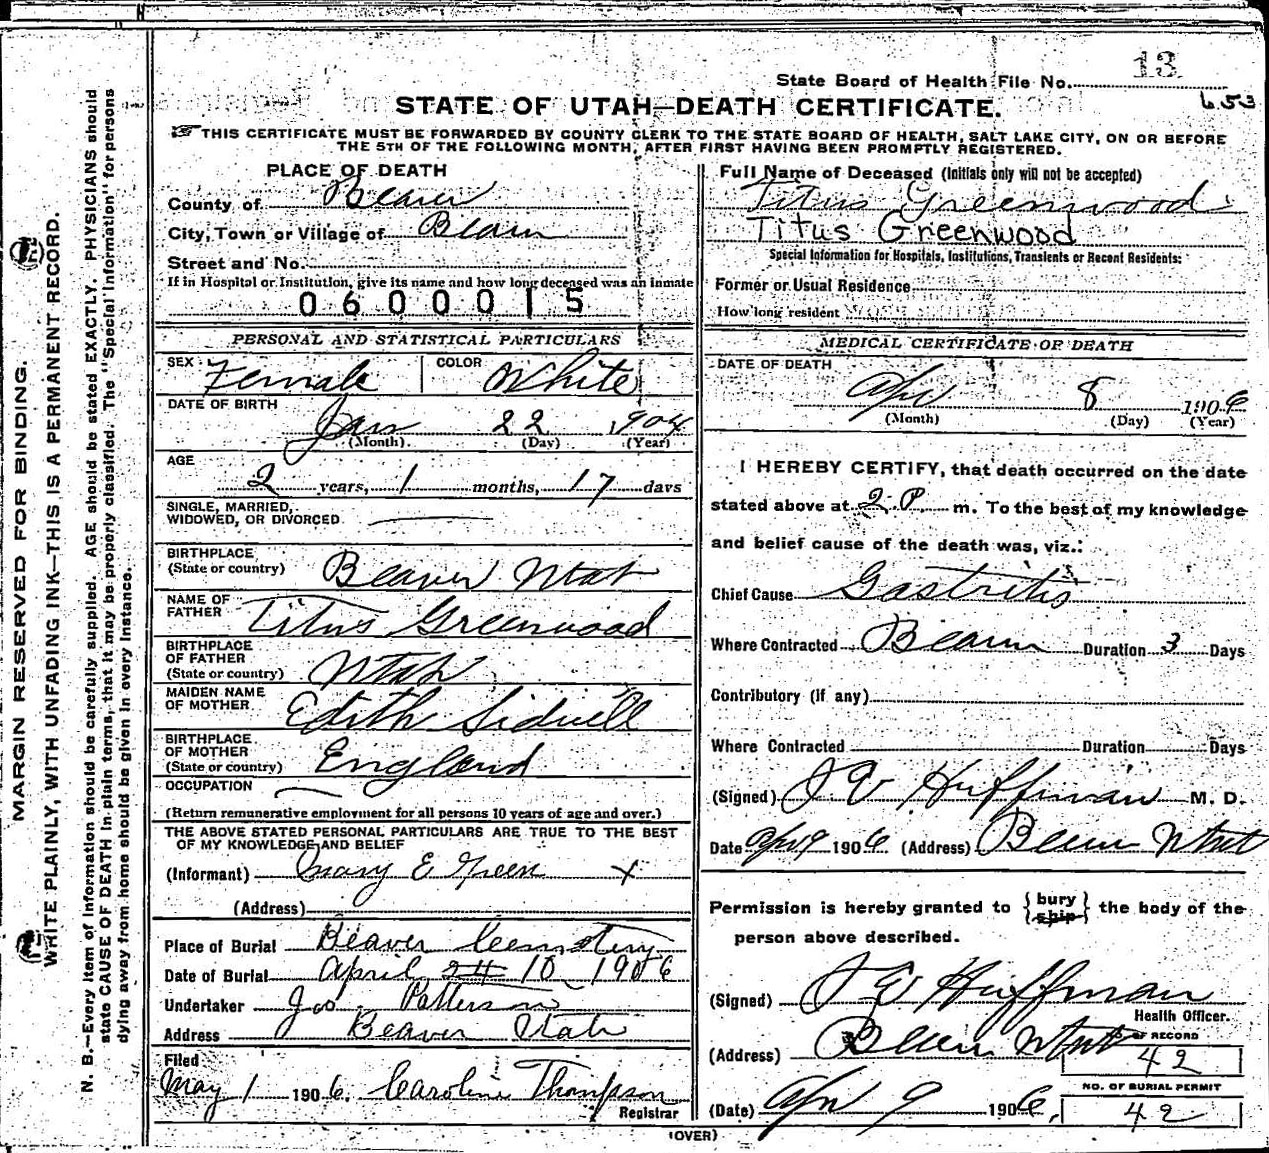 13
State Board of Health File No.
STATE OF UTAH—DEATH CERTIFICATE.
653
THIS CERTIFICATE MUST BE FORWARDED BY COUNTY CLERK TO THE STATE BOARD OF HEALTH, SALT LAKE CITY, ON OR BEFORE
THE 5TH OF THE FOLLOWING MONTH, AFTER FIRST HAVING BEEN PROMPTLY REGISTERED.
MARGIN RESERVED FOR BINDING.
WRITE PLAINLY, WITH UNFADING INK—THIS IS A PERMANENT RECORD.
N. B.—Every item of information should be carefully supplied. AGE should be stated EXACTLY. PHYSICIANS should
state CAUSE OF DEATH in plain terms, that it may be properly classified. The "Special Information" for persons
dying away from home should be given in every instance.
PLACE OF DEATH
County of Beaver
City, Town or Village of Beaver
Street and No.
If in Hospital or Institution, give its name and how long deceased was an inmate
0600015
PERSONAL AND STATISTICAL PARTICULARS
SEX Female COLOR White
DATE OF BIRTH
Jan 22 1904
(Month) (Day) (Year)
AGE
2 years, 1 months, 17 days
SINGLE, MARRIED,
WIDOWED, OR DIVORCED
BIRTHPLACE
(State or country) Beaver Utah
NAME OF
FATHER Titus Greenwood
BIRTHPLACE
OF FATHER
(State or country) Utah
MAIDEN NAME
OF MOTHER Edith Sidwell
BIRTHPLACE
OF MOTHER
(State or country) England
OCCUPATION
(Return remunerative employment for all persons 10 years of age and over.)
THE ABOVE STATED PERSONAL PARTICULARS ARE TRUE TO THE BEST
OF MY KNOWLEDGE AND BELIEF
(Informant) Mary E Green x
(Address)
Place of Burial Beaver Cemetery
Date of Burial April 24 10 1906
Undertaker Jos. Patterson
Address Beaver Utah
Filed
May 1 1906. Caroline Thompson
Registrar
Full Name of Deceased (Initials only will not be accepted)
Titus Greenwood
Titus Greenwood
Special Information for Hospitals, Institutions, Transients or Recent Residents:
Former or Usual Residence
How long resident
MEDICAL CERTIFICATE OF DEATH
DATE OF DEATH
Apr 8 1906
(Month) (Day) (Year)
I HEREBY CERTIFY, that death occurred on the date
stated above at 2 P m. To the best of my knowledge
and belief cause of the death was, viz.:
Chief Cause Gastritis
Where Contracted Beaver Duration 3 Days
Contributory (if any)
Where Contracted Duration Days
(Signed) J W Huffman M. D.
Date Apr 9 1906 (Address) Beaver Utah
Permission is hereby granted to {bury
{ship} the body of the
person above described.
(Signed) J W Huffman
Health Officer.
(Address) Beaver Utah
RECORD
42
NO. OF BURIAL PERMIT
(Date) Apr 9 1906. 42
(OVER)